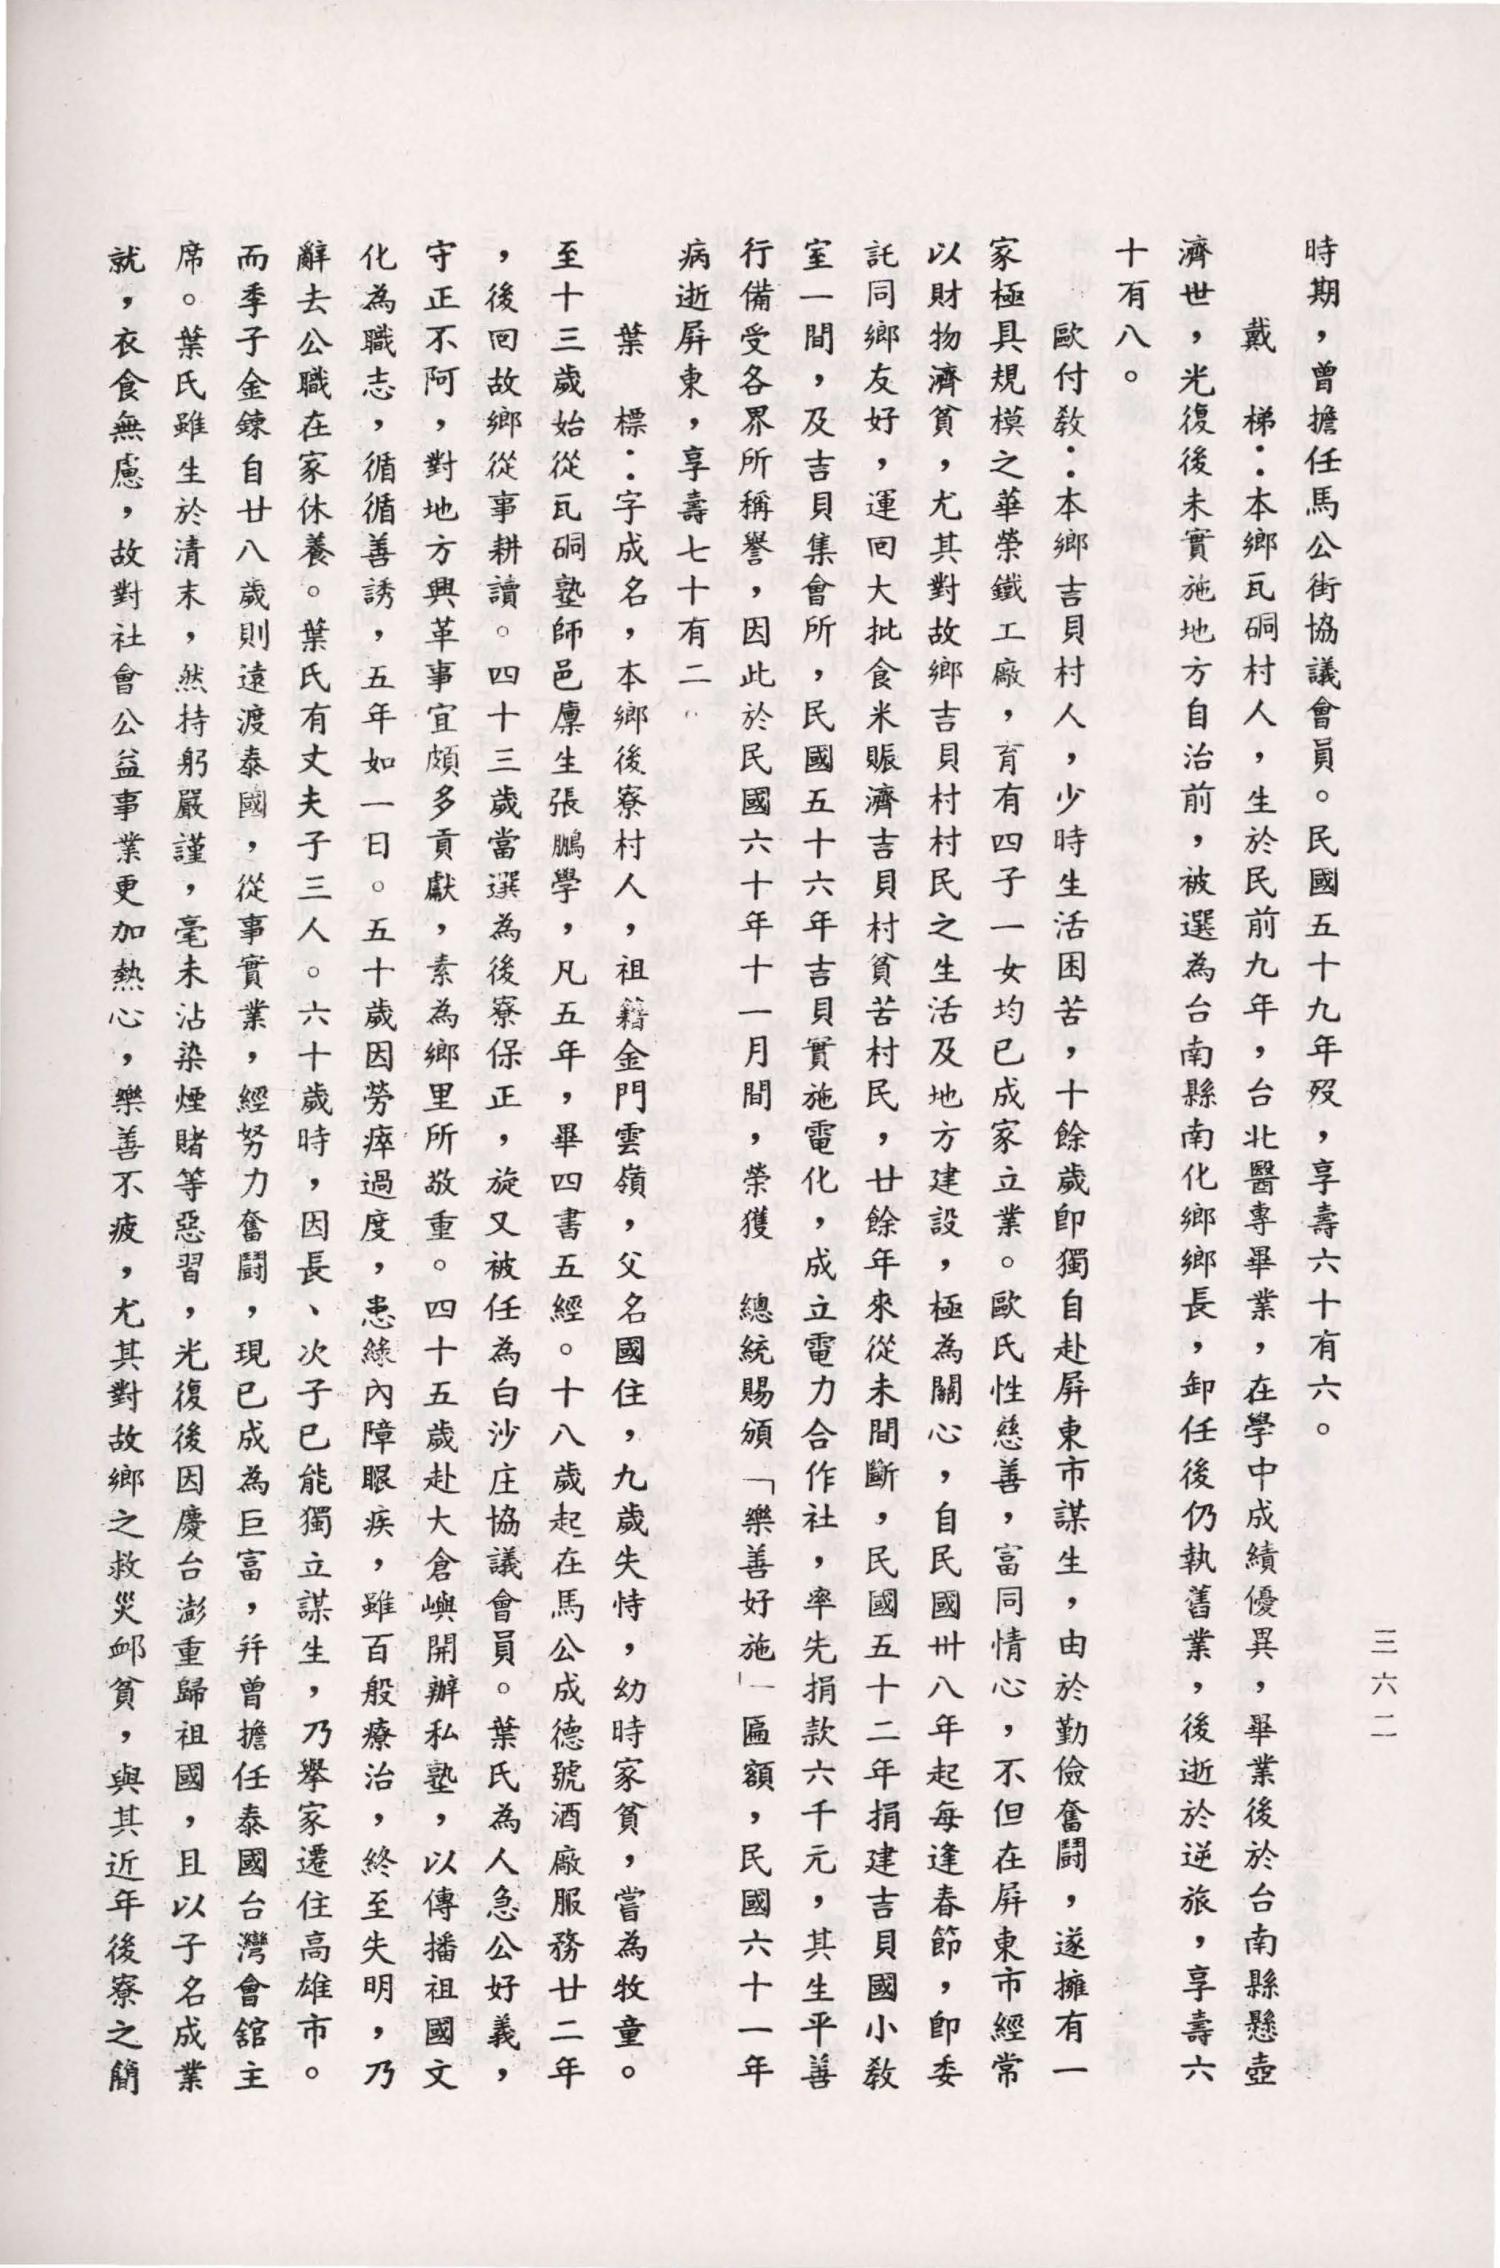 三六二
時期，曾擔任馬公街協議會員。民國五十九年歿，享壽六十有六。
戴　梯：本鄉瓦硐村人，生於民前九年，台北醫專畢業，在學中成績優異，畢業後於台南縣懸壺
濟世，光復後未實施地方自治前，被選為台南縣南化鄉鄉長，卸任後仍執舊業，後逝於逆旅，享壽六
十有八。
歐付教：本鄉吉貝村人，少時生活困苦，十餘歲卽獨自赴屏東市謀生，由於勤儉奮鬪，遂擁有一
家極具規模之華榮鐵工廠，育有四子一女均已成家立業。歐氏性慈善，富同情心，不但在屏東市經常
以財物濟貧，尤其對故鄉吉貝村村民之生活及地方建設，極為關心，自民國卅八年起每逢春節，卽委
託同鄉友好，運回大批食米賑濟吉貝村貧苦村民，廿餘年來從未間斷，民國五十二年捐建吉貝國小教
室一間，及吉貝集會所，民國五十六年吉貝實施電化，成立電力合作社，率先捐款六千元，其生平善
行備受各界所稱譽，因此於民國六十年十一月間，榮獲　總統賜頒「樂善好施」匾額，民國六十一年
病逝屏東，享壽七十有二。
葉　標：字成名，本鄉後寮村人，祖籍金門雲嶺，父名國住，九歲失恃，幼時家貧，嘗為牧童。
至十三歲始從瓦硐塾師邑廩生張鵬學，凡五年，畢四書五經。十八歲起在馬公成德號酒廠服務廿二年
，後回故鄉從事耕讀。四十三歲當選為後寮保正，旋又被任為白沙庄協議會員。葉氏為人急公好義，
守正不阿，對地方興革事宜頗多貢獻，素為鄉里所敬重。四十五歲赴大倉嶼開辦私塾，以傳播祖國文
化為職志，循循善誘，五年如一日。五十歲因勞瘁過度，患綠內障眼疾，雖百般療治，終至失明，乃
辭去公職在家休養。葉氏有丈夫子三人。六十歲時，因長、次子已能獨立謀生，乃擧家遷住高雄市。
而季子金鍊自廿八歲則遠渡泰國，從事實業，經努力奮鬪，現已成為巨富，幷曾擔任泰國台灣會舘主
席。葉氏雖生於清末，然持躬嚴謹，毫未沾染煙賭等惡習，光復後因慶台澎重歸祖國，且以子名成業
就，衣食無慮，故對社會公益事業更加熱心，樂善不疲，尤其對故鄉之救災卹貧，與其近年後寮之簡